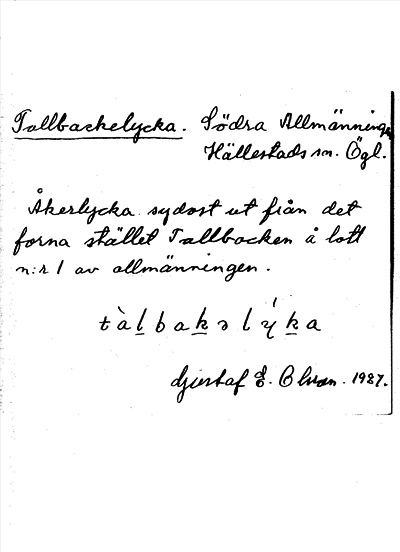 Tallbackelycka. Södra Allmänningen
Hällestads sn. Ögl.
Åkerlycka sydost ut från det
forna stället Tallbacken å lott
n:r 1 av allmänningen.
tàl̲bak̲əlýk̲a
Gustaf E. 1927.